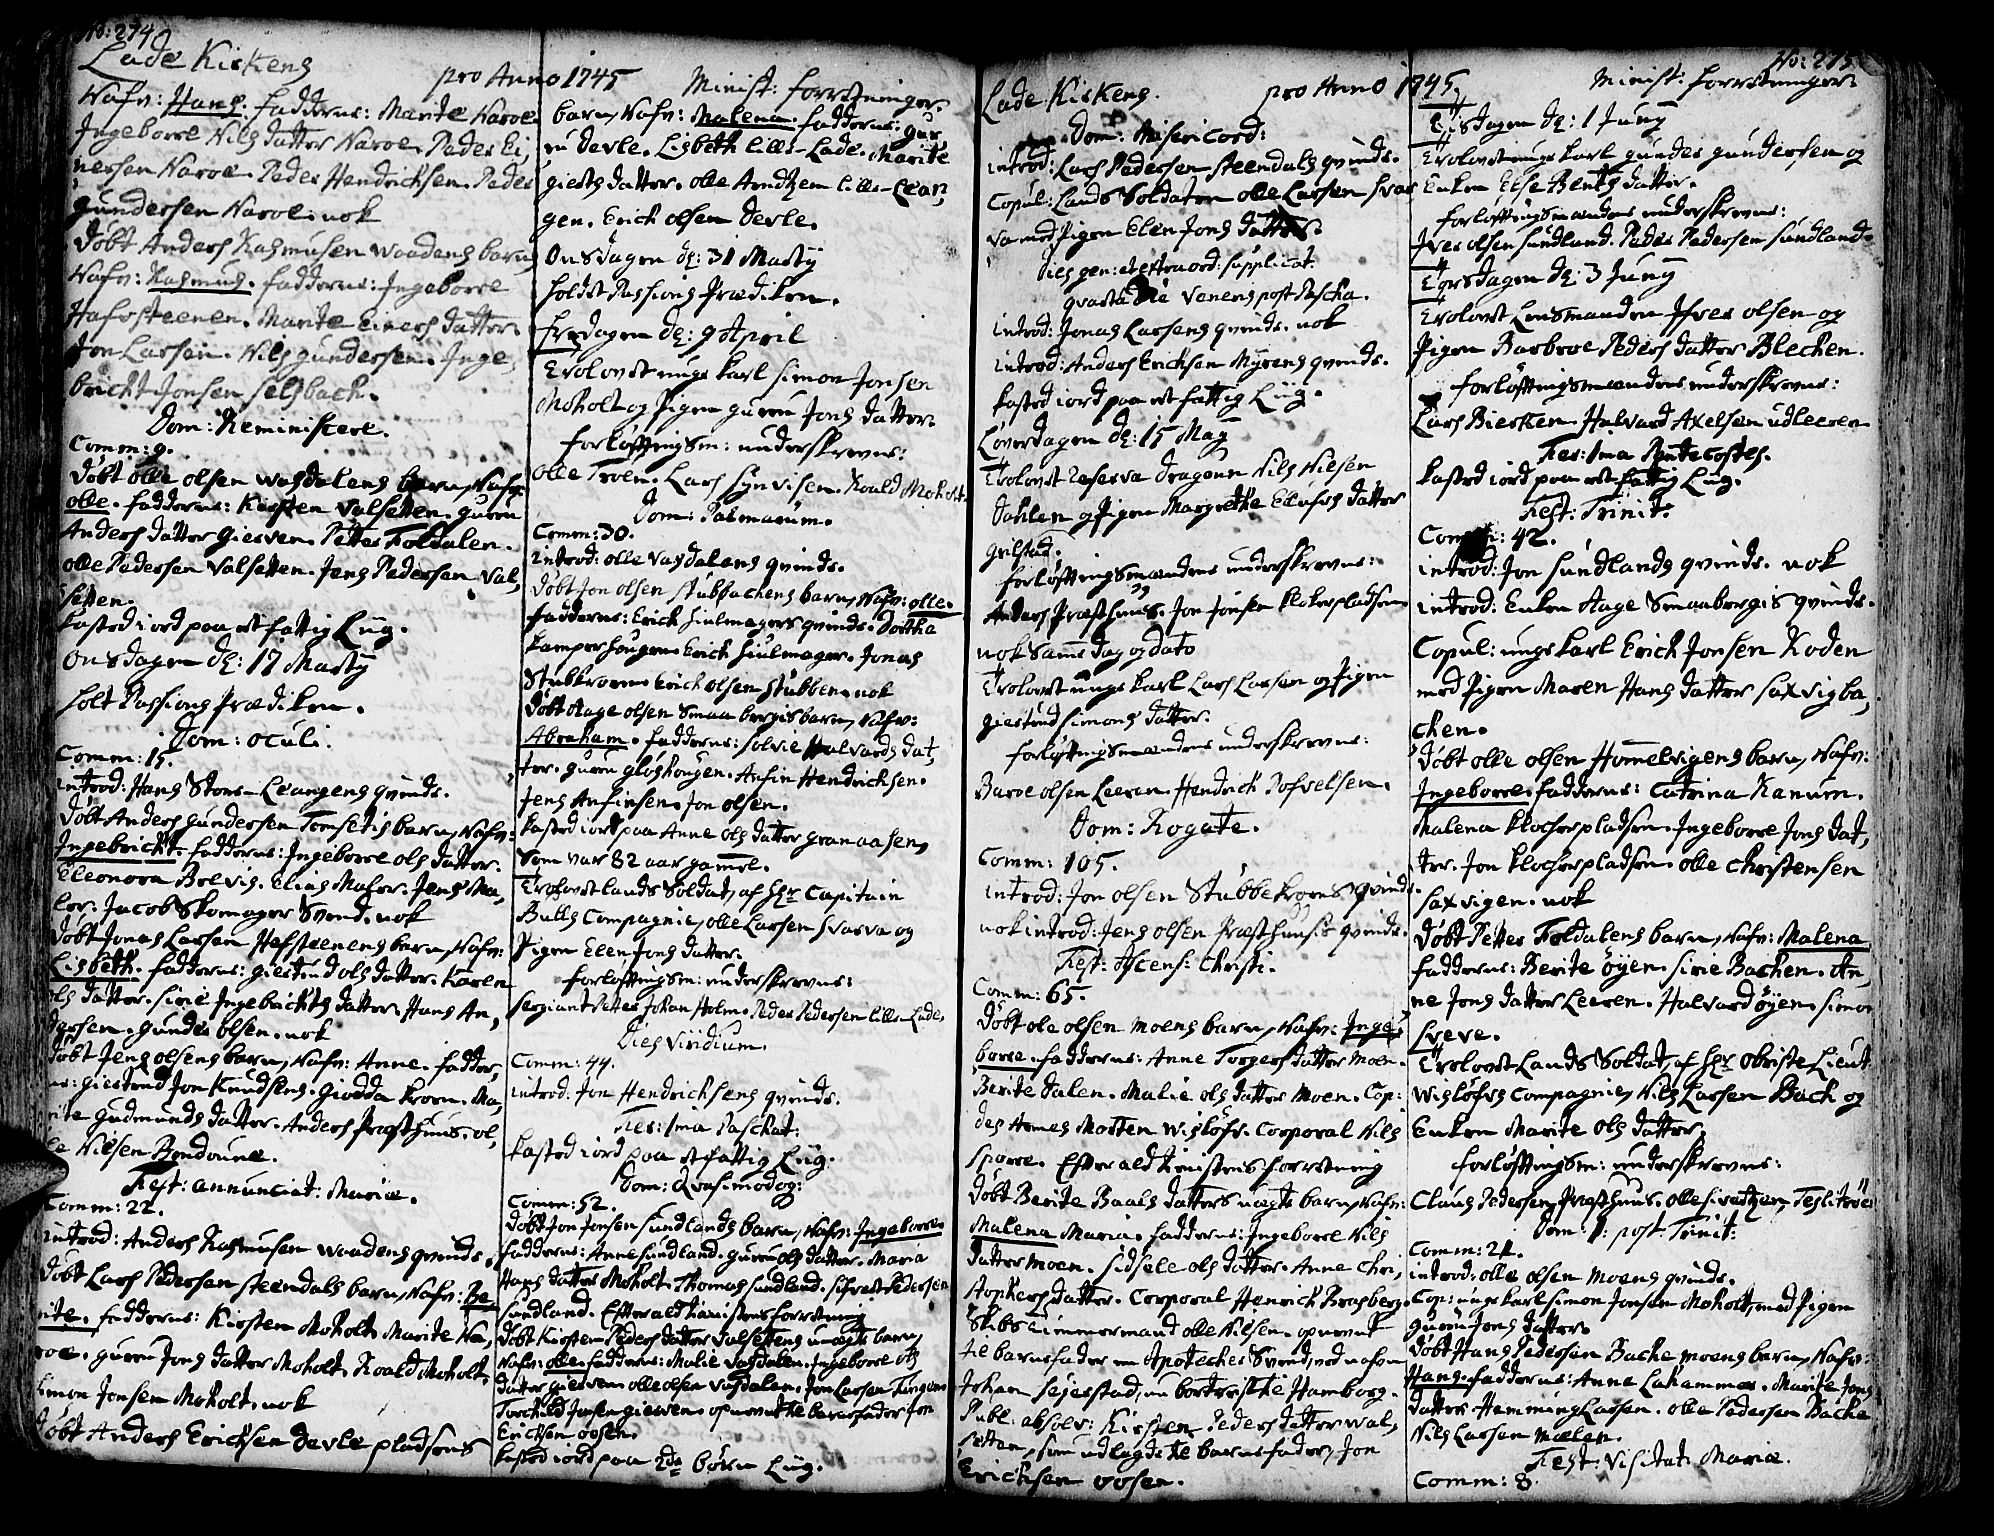 No: 274
Lade Kirkens
pro Anno 1745
Minist: forretninger
Nafn: Hans. fadderne: Marite Naroe
Ingeborre Nils datter Naroe. Peder Ei,
nersen Naroe. Peder Hendrichsen. Peder
Gundersen Naroe. nok
døbt Anders Rasmusen Waadens barn
Nafn: Rasmus. fadderne: Ingeborre
Hafsteenen. Marite Einers datter.
Jon Larsen. Nils Gundersen. Inge,
bricht Jonsen Selsbach.
Dom: Reminiscere.
Comm: 9.
døbt olle olsen Wasdalens barn, Nafn:
olle. fadderne: Kirsten Valsetten. guru
Anders datter Giesven. Petter Foldalen.
olle Pedersen Valsetten. Jens Pedersen Val,
setten.
kasted iord paa et fattig Liig.
Onsdagen d: 17 Martÿ
holt Passions Prædiken.
Dom: oculi.
Comm: 15.
introd: Hans Store-Leangens qvinde.
døbt Anders Gundersen Tomsetis barn, Nafn:
Ingebricht. fadderne: Ingeborre ols datter.
Eleonora Bolvig. Elias Maler. Jens Ma,
ler. Jacob Skomager Svend. nok
døbt Jonas Larsen Hafsteenens barn, Nafn:
Lisbeth. fadderne: giertrud ols datter. Karen
ols datter. Sirie Ingebrichts datter. Hans An,
dersen. gunder olsen. nok
døbt Jens olsens barn, Nafn: Anne. fadder,
ne: giertrud Jon Knudsens. Giødda Kroen. Ma,
rite Gudmunds datter. Anders Præsthuus. ol,
le Nilsen Rendoune.
Fest: annunciat: Mariæ.
Comm: 22.
introd: Anders Rasmusen Waadens qvinde.
døbt Lars Pedersen Steendals barn, Nafn: Be,
rite. fadderne: Kirsten Moholt. Marite Na,
roe. guru Jons datter Moholt. Roald Moholt.
Simon Jonsen Moholt. nok
døbt Anders Ericksen Devle pladsens
barn, Nafn: Malena. fadderne: gu,
ru Devle. Lisbeth Lille-Lade. Marite
giests datter. olle Arndtzen Lille-Lean,
gen. Erick olsen Devle.
Onsdagen d: 31 Martÿ
holdt Passions Prædiken.
fredagen d: 9 April
Trolovet ungekarl Simon Jonsen
Moholt og Pigen guru Jons datter.
forløftningsm: underskrevne:
olle Troen. Lars Synvisen. Roald Moholt.
Dom: Palmarum.
Comm: 30.
introd: olle Vasdalens qvinde.
døbt Jon olsen Stubbachens barn, Nafn: olle.
fadderne: Erick Hiulmagers qvinde. Dorthe
Kamperhaugen. Erick Hiulmager. Jonas
Stubkroen. Erick olsen Stubben. nok
døbt Aage olsen Smaabergis barn, Nafn:
Abraham. fadderne: Solvie Halvards dat,
ter. guru gløshougen. Anfin Hendrichsen.
Jens Anfinsen. Jon olsen.
kasted iord paa Anne ols datter granaasen,
som var 82 aar gammel.
Trolovet Lands Soldat, af Hr Capitain
Bulls Compagnie, olle Larsen Svarva og
Pigen Elen Jons datter.
forløftningsm: underskrevne:
Sergiant Petter Johan Holm. Peder Pedersen Lille-Lade,
Dies Viridium.
Comm: 44.
introd: Jon Hendrichsens qvinde.
Fer: 1ma Paschat:
kasted iord paa et fattig Liig.
Dom: Qvasimodog:
Comm: 52.
døbt Jon Jonsen Sundlands barn, Nafn: Ingeborre
fadderne: Anne Sundland. guru ols datter. Maria
Hans datter Moholt. Thomas Sundland. Sifvert Pedersen
Sundland. Efter al Tienistens forretning
døbt Kirsten Peders datter Valsettens uægte barn,
Nafn: olle. fadderne: Malie Vasdalen. Ingeborre ols
datter Giesven. olle olsen Vasdalen. Jon Larsen
Torchild Jonsen giesven. opnevnte barnefader Jon
Ericksen oosen.
kasted iord paa 2de børns Liig.
No: 275
Lade Kirkens.
pro Anno 1745.
Minist: forretninger.
Dom: Misericord:
introd: Lars Pedersen Steendals qvinde.
Copul: Lands Soldaten olle Larsen Svar
va med Pigen Elen Jons datter.
Dies gen: et extraord: supplicat:
qvarta die Veneris post Pascha.
introd: Jonas Larsens qvinde. nok
introd: Anders Ericksen Myrens qvinde.
kasted iord paa et fattig Liig.
Løverdagen d: 15 Maÿ
Trolovet Reserva dragoun Nils Nilsen
Dahlen og Pigen Margrethe Ellufs datter
Grilstad.
forløftningsmændene underskrevne:
Anders Præsthuus. Jon Jonsen Klokerpladsen
nok samme dag og dato
Trolovet ungekarl Lars Larsen og Pigen
giertrud Simons datter.
forløftningsmændene underskrevne:
Baroe olsen Leeren. Hendrick Rofvelsen.
Dom: Rogate.
Comm: 105.
introd: Jon olsen Stubbekroens qvinde.
nok introd: Jens olsen Præsthusis qvinde.
Fest: Ascens: Christi.
Comm: 65.
døbt ole olsen Moens barn, Nafn: Inge,
borre. fadderne: Anne Torgers datter Moen.
Berite Dalen. Malie ols datter Moen. Cop:
des Armes Morten Wisløfv. Corporal Nils
Sporre. Efter al Tienistens forretning
døbt Berite Baals datters uægte barn, Nafn:
Malena Maria. fadderne: Ingeborre Nils
datter Moen. Sidsele ols datter. Anne Chri,
stophers datter. Corporal Henrich Bragberg.
Skibs Timmermand olle Nilsen. opnevnt
te barnefader en Apotecher Svend, ved nafn
Johan Sejerstad, nu bortreiste Hamborg.
Publ: absolv: Kirsten Peders datter Wal,
setten, som udlagde te barnefader, Jon
Erichsen oosen.
Tisdagen d: 1 Junÿ
Trolovet ungekarl gunder gundersen og
Enken Else Bentz datter.
forløftningsmændene underskrevne:
Iver olsen Sundland. Peder Pedersen Sundland.
Torsdagen d: 3 Junÿ
Trolovet Lensmanden Ifver olsen og
Pigen Barbroe Peders datter Blecken.
forløftningsmændene underskrevne:
Lars Biercken. Halvard Axelsen udleeren
Fer: 1ma Pentecostes.
kasted iord paa et fattig Liig.
Fest: Trinit:
Comm: 42.
introd: Jon Sundlands qvinde. nok
introd: Enken Aage Smaabergis qvinde.
Copul: ungekarl Erick Jonsen Roden
med Pigen Maren Hans datter Saxvigba,
chen.
døbt olle olsen Hommelvigens barn, Nafn:
Ingeborre. fadderne: Catrina Ranum.
Malena Klocherpladsen. Ingeborre Jons dat,
ter. Jon Klocherpladsen. olle Christensen
Saxvigen. nok
døbt Petter Foldalens barn, Nafn: Malena
fadderne: Berite Øyen. Sirie Bachen. An,
ne Jons datter Leeren. Halvard Øyen. Simon
Sveve.
Trolovet Lands Soldat, af Hr obriste Lieut:
Wisløfvs Compagnie, Nils Larsen Bach og
Enken Marite ols datter,
forløftningsm: underskrevne:
Claus Pedersen Præsthuus. olle Sivertzen, Teslitrøen
Dom: 1: post Trinit:
Comm: 21.
introd: olle olsen Moens qvinde.
Cop: ungekarl Simon Jonsen Moholt, med Pigen
guru Jons datter.
døbt Hans Pedersen Backe Moens barn, Nafn:
Hans. fadderne: Anne Lahammer. Marite Jons
datter. Hemming Larsen. olle Pedersen Backe
Nils Larsen Mælen.
Fest: Visitat: Mariæ.
Comm: 8.